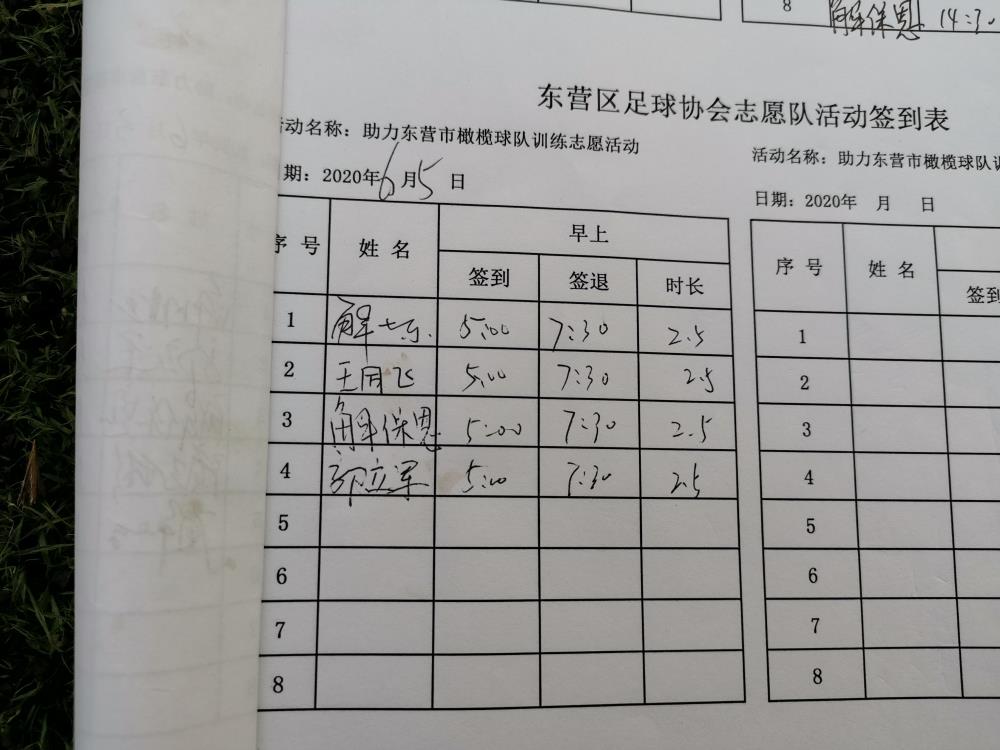 8 解保恩 14:30
东营区足球协会志愿队活动签到表
活动名称：助力东营市橄榄球队训练志愿活动
期：2020年6月5日
序号 姓名 早上
签到 签退 时长
1 解 5:00 7:30 2.5
2 王同飞 5:00 7:30 2.5
3 解保恩 5:00 7:30 2.5
4 立军 5:00 7:30 2.5
5
6
7
8
活动名称：助力东营市橄榄球队训
日期：2020年 月 日
序号 姓名
签到
1
2
3
4
5
6
7
8